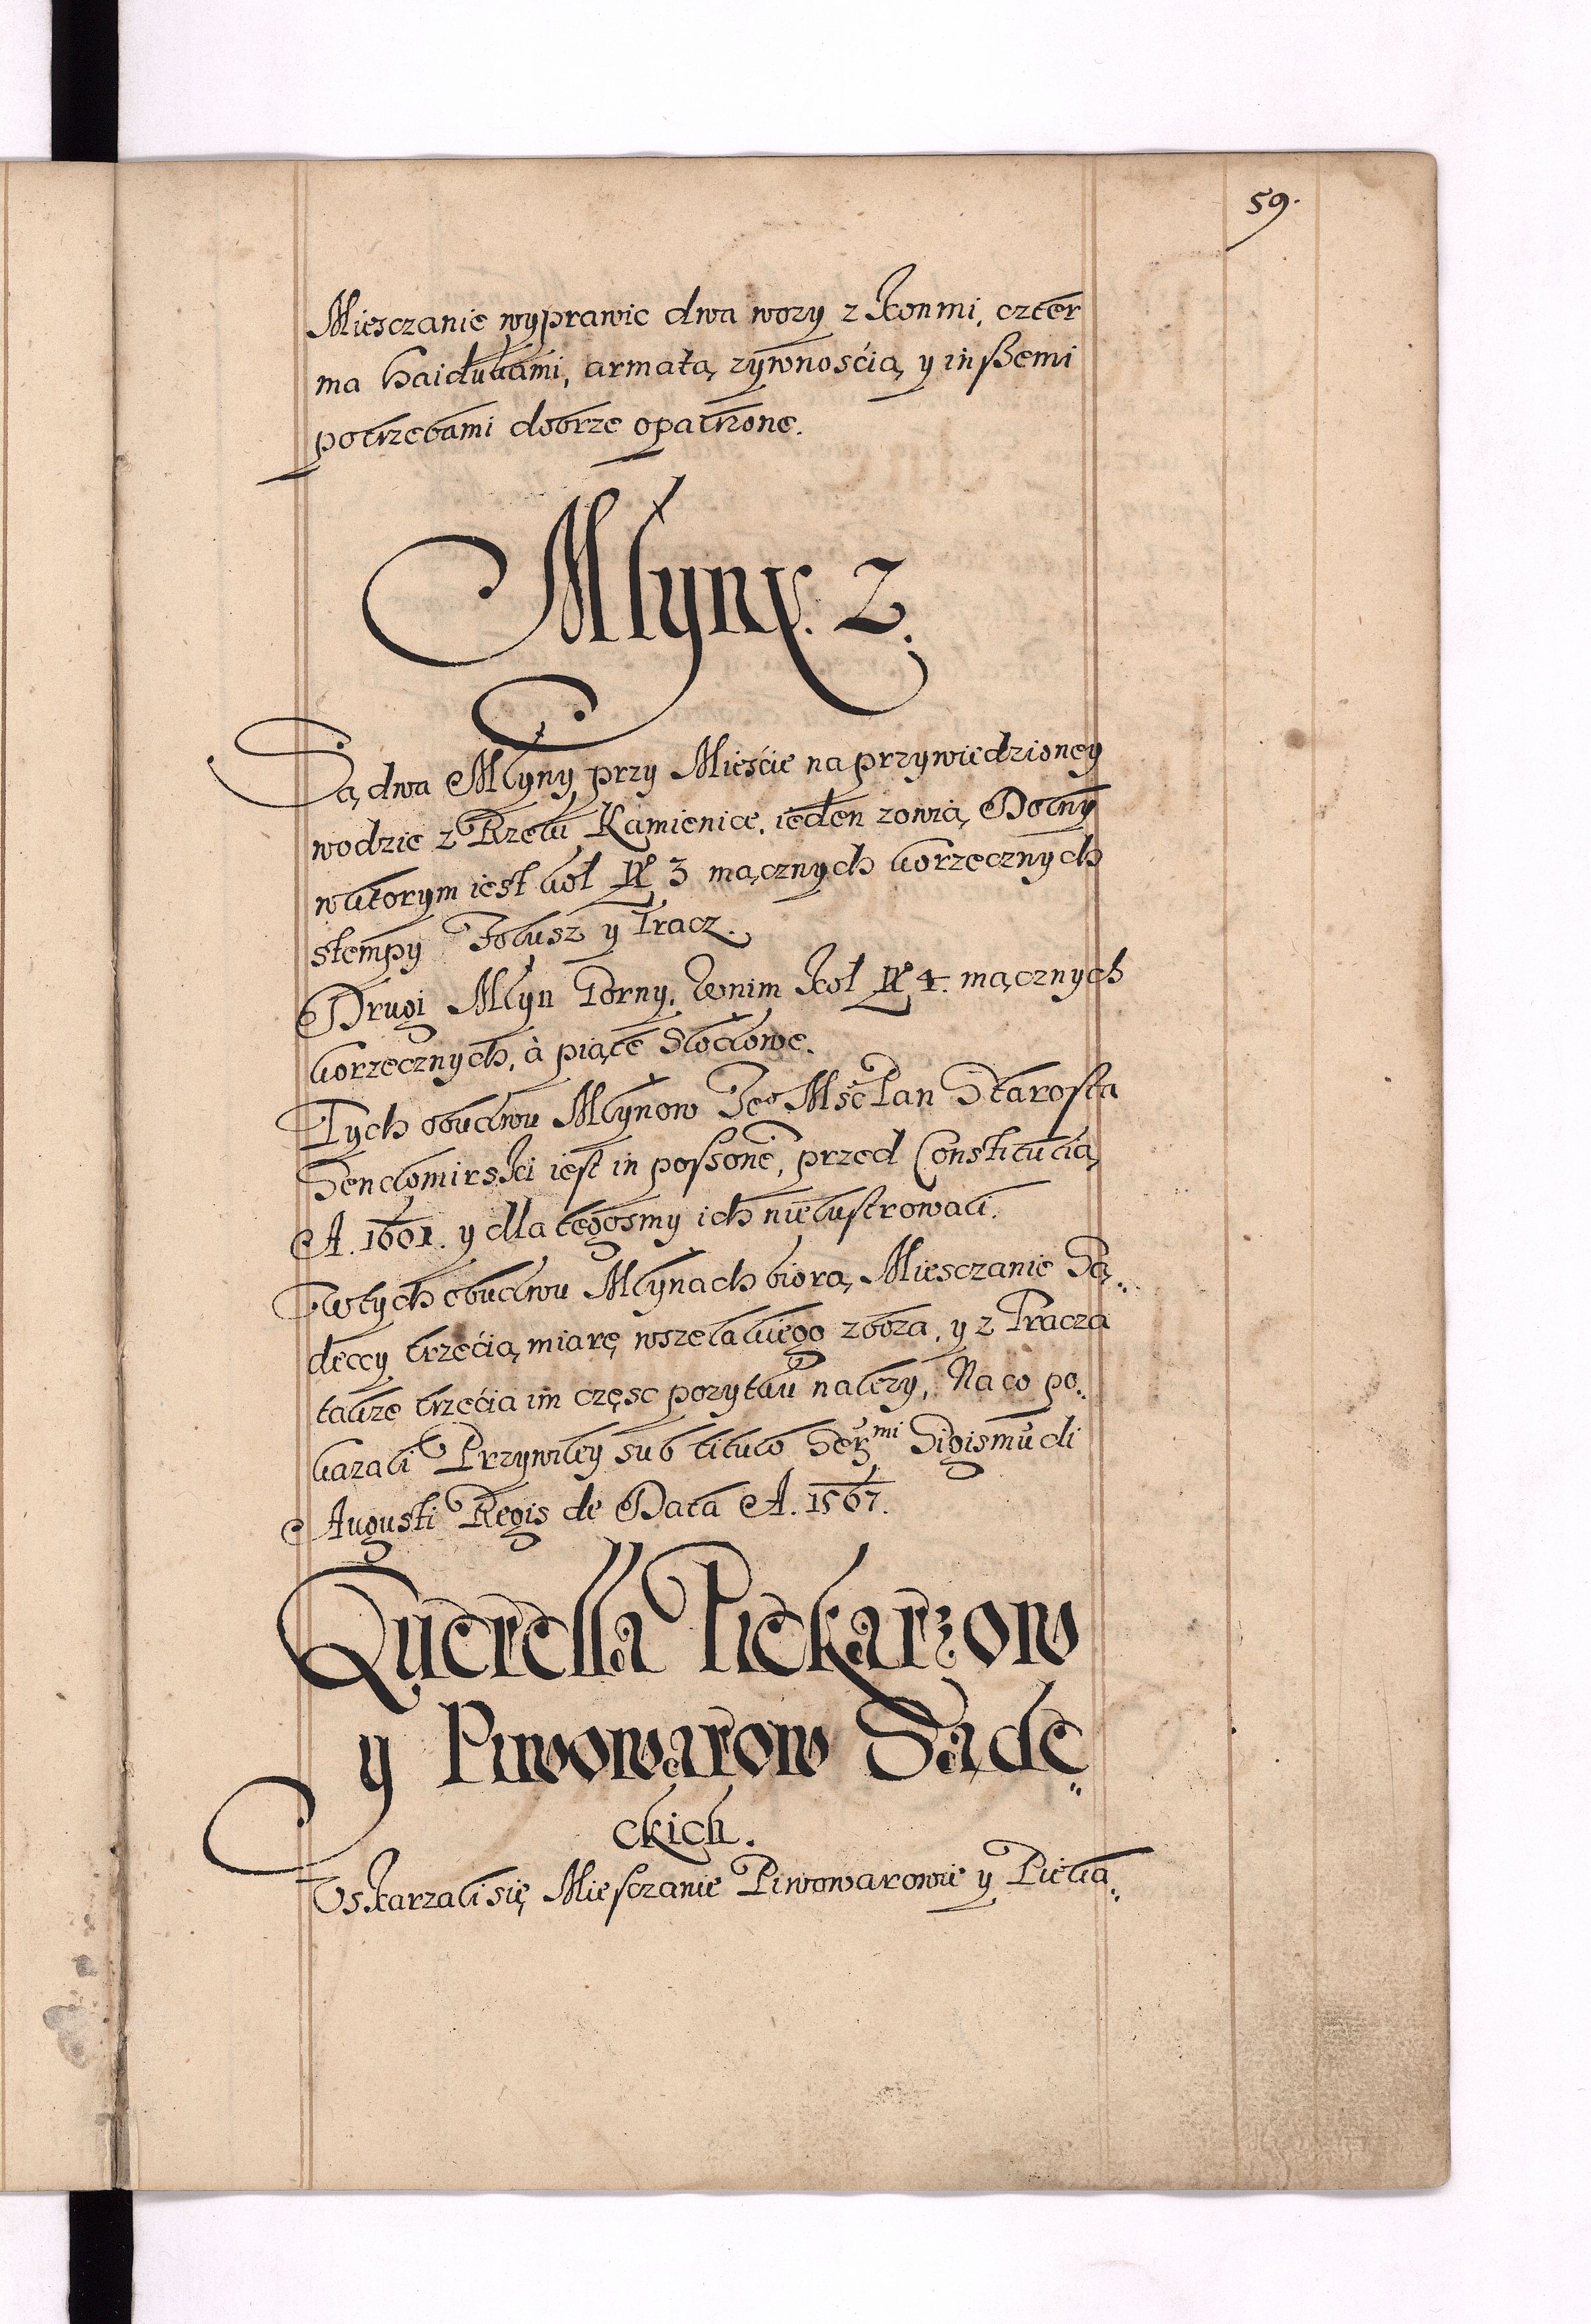 59.
Miesczanie wyprawic dwa wozy z konmi, czter
ma haidukami, armatą zywnoscią y inszemi
potrzebami dobrze opatrzone.
Młyny. 2.
Są dwa Młyny przy Mieście na przywiedzioney
wodzie z Rzeki Kamienice. ieden zowią Dolny
w ktorym iest koł N 3 mącznych korzecznych
stempy Folusz y Tracz.
Drugi Młyn Gorny. w nim koł N 4. mącznych
korzecznych, à piąte słodowe.
Tych obudwu Młynow Jeo Mść Pan Starosta
Sendomirski iest in possone, przed Constitucią
A. 1601. y dla tegosmy ich nie lustrowali.
W tych obudwu Młynach biorą Miesczanie Są..
deccy trzecią miarę wszelakiego zboza. y z Tracza
takze trzecia im częsc pozytku nalezy, Na co po..
kazali Przywiley sub titulo Sermi Sigismudi
Augusti Regis de Data A. 1567.
Querella Piekarzow
y Piwowarow Sąde..
ckich.
Uskarzali się Miesczanie Piwowarowie y Pieka..